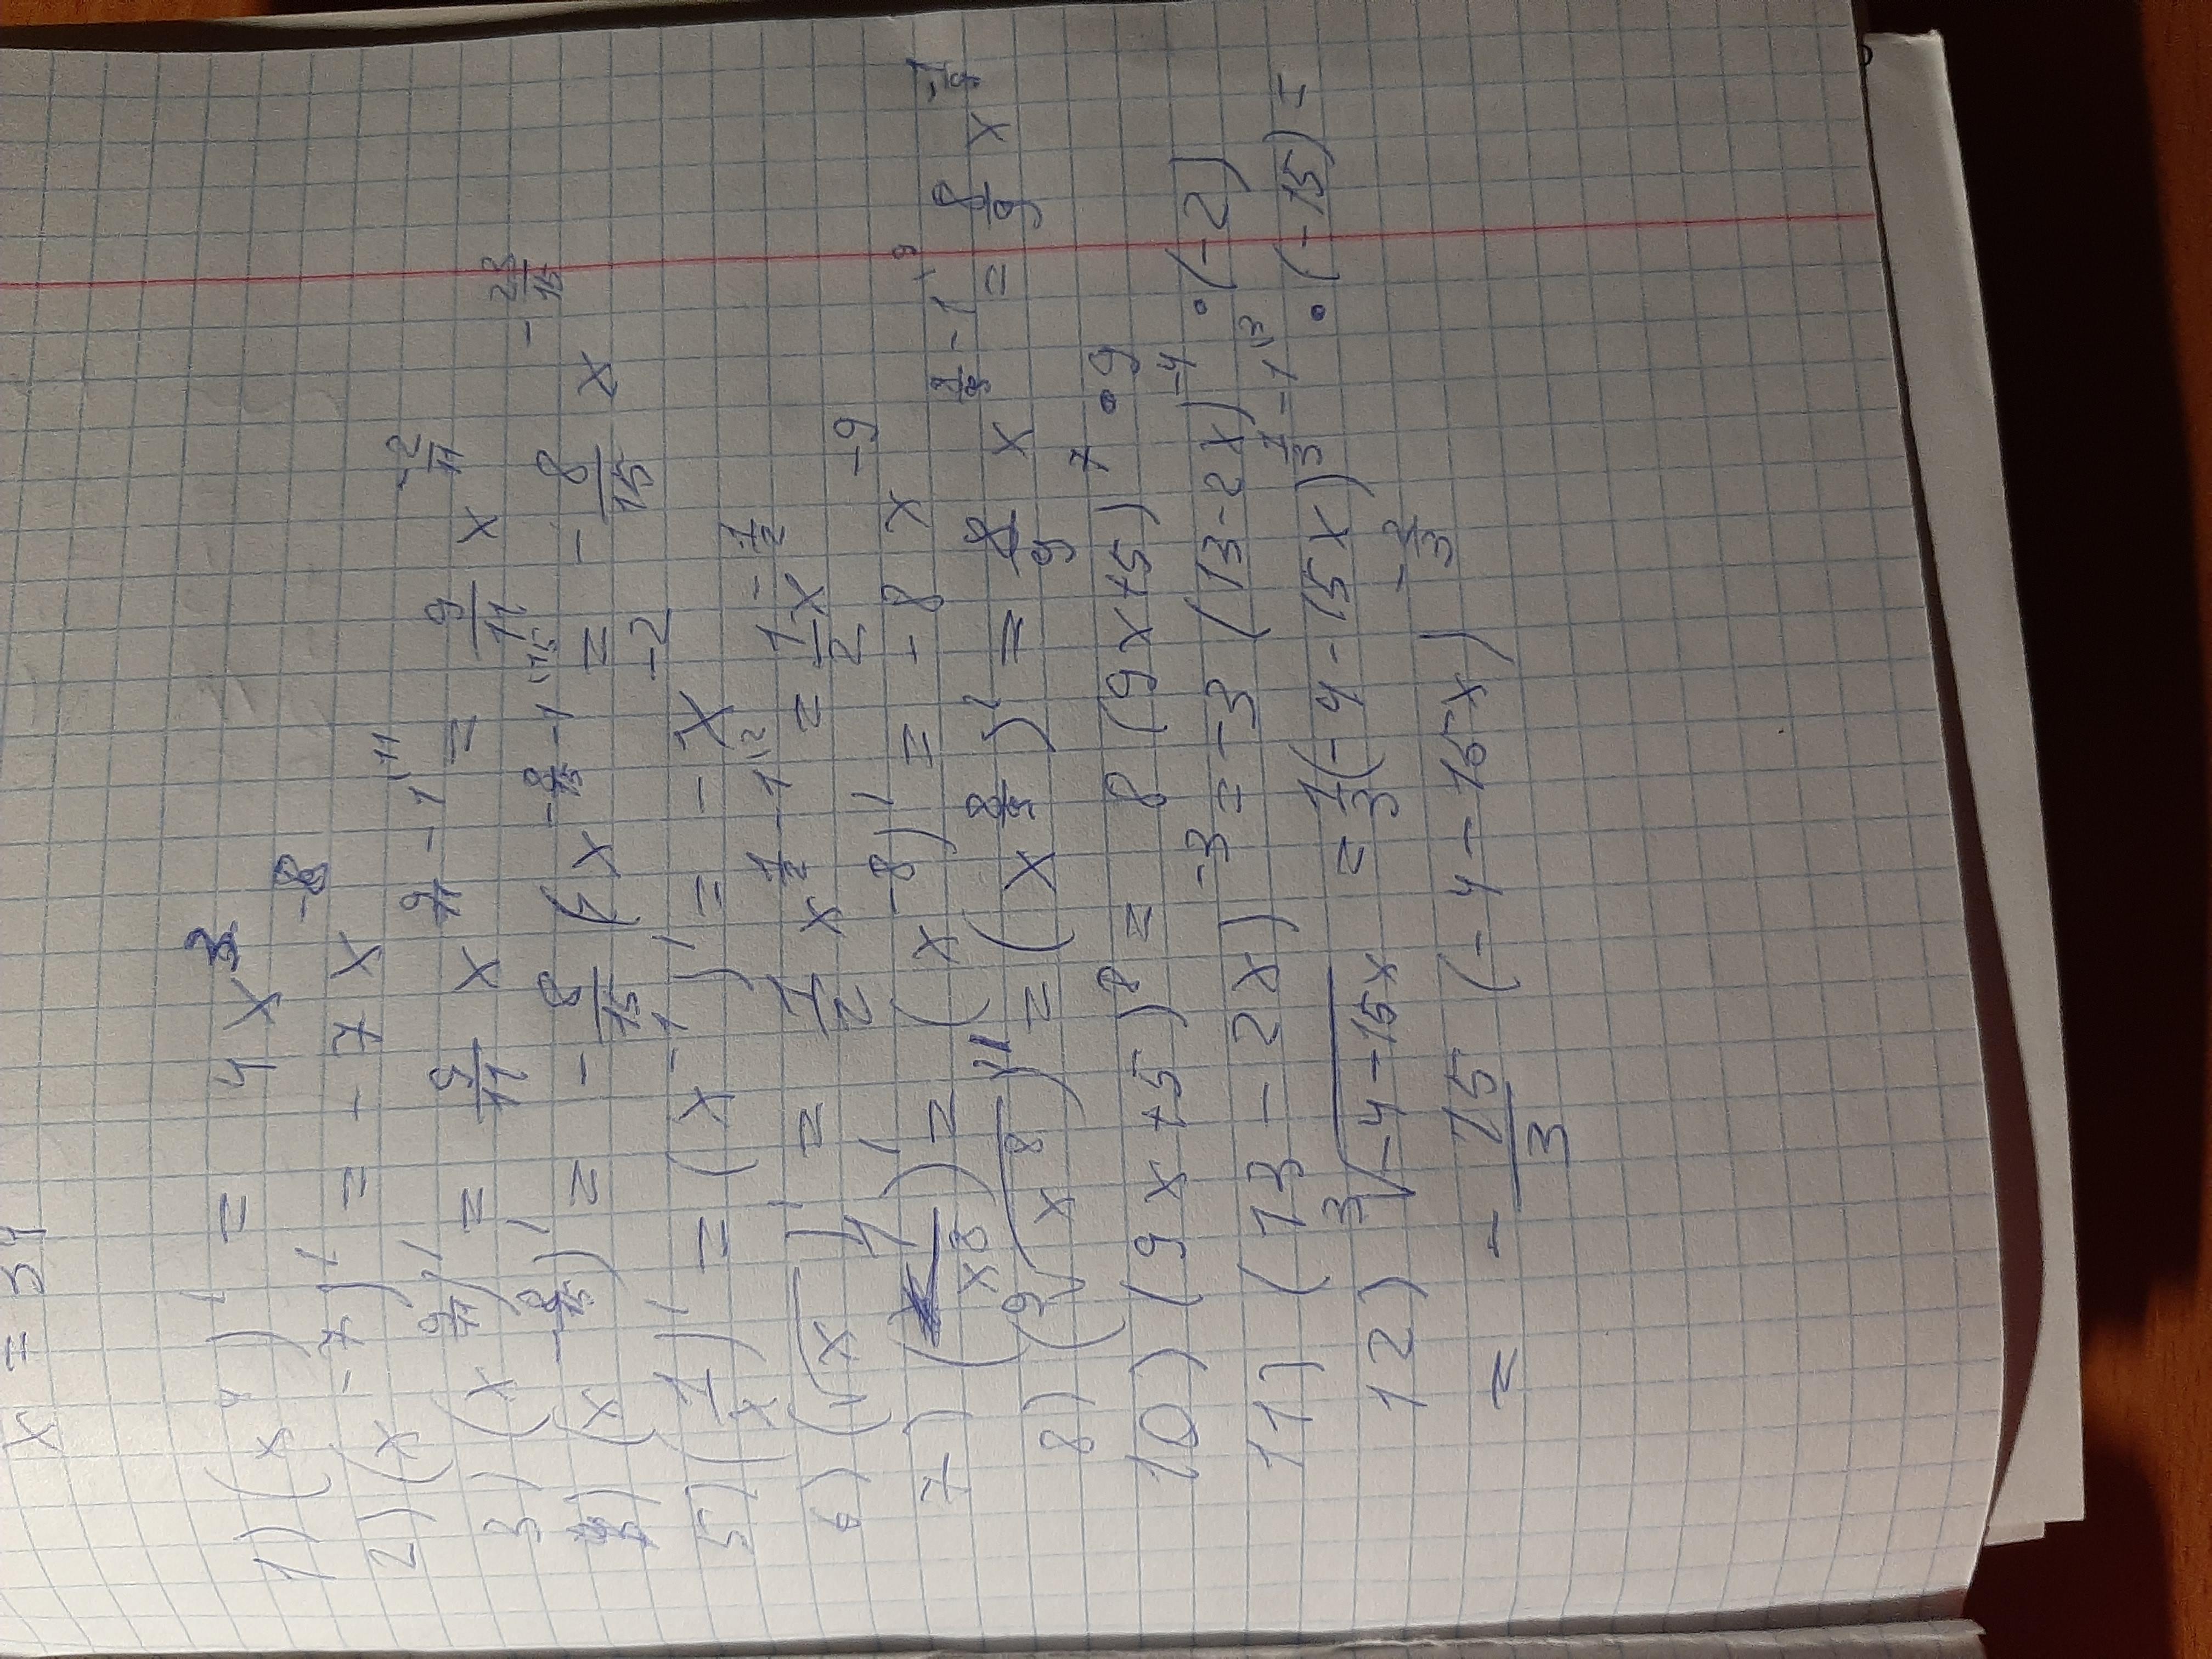 x = 34
1) (x⁴)' = 4x³
2) (x⁻⁷)' = -7x⁻⁸
3) (x^(9/11))' = 9/11 x^(9/11 - 1^(\11)) = 9/11 x^(-2/11)
4) (x^(-8/15))' = -8/15 (x^(-8/15 - 1^(\15)) = -8/15 x^(-23/15)
5) (1/x)' = (x⁻¹)' = -x⁻²
6) (√x)' = 1/2 x^(1/2 - 1^(\2)) = 1/2 x^(-1/2)
7) (1/x⁸)' = (x⁻⁸)' = -8x⁻⁹
8) (⁹√x⁸)' = (x^(8/9))' = 8/9 x^(8/9 - 1^(\9)) = 8/9 x^(-1/9)
10) (9x+5)⁸ = 8(9x+5)⁷ • 9
11) (13-2x)⁻³ = -3(13-2x)⁻⁴ • (-2)
12) ³√(-4-15x) = 1/3(-4-15x)^(1/3 - 1^(\3)) • (-15) =
= -15/3 (-4-15x)^(-2/3)